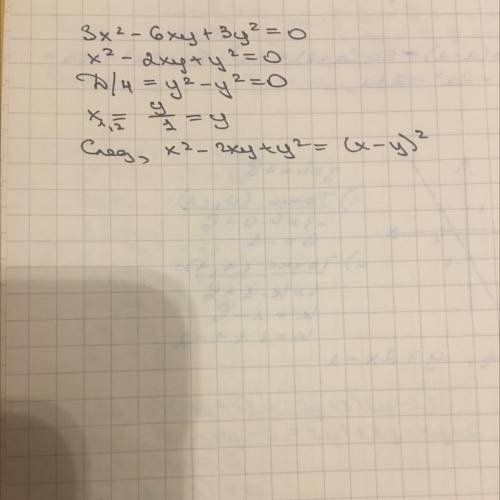 3x² - 6xy + 3y² = 0
x² - 2xy + y² = 0
D/4 = y² - y² = 0
x₁,₂ = y/1 = y
След, x² - 2xy + y² = (x - y)²